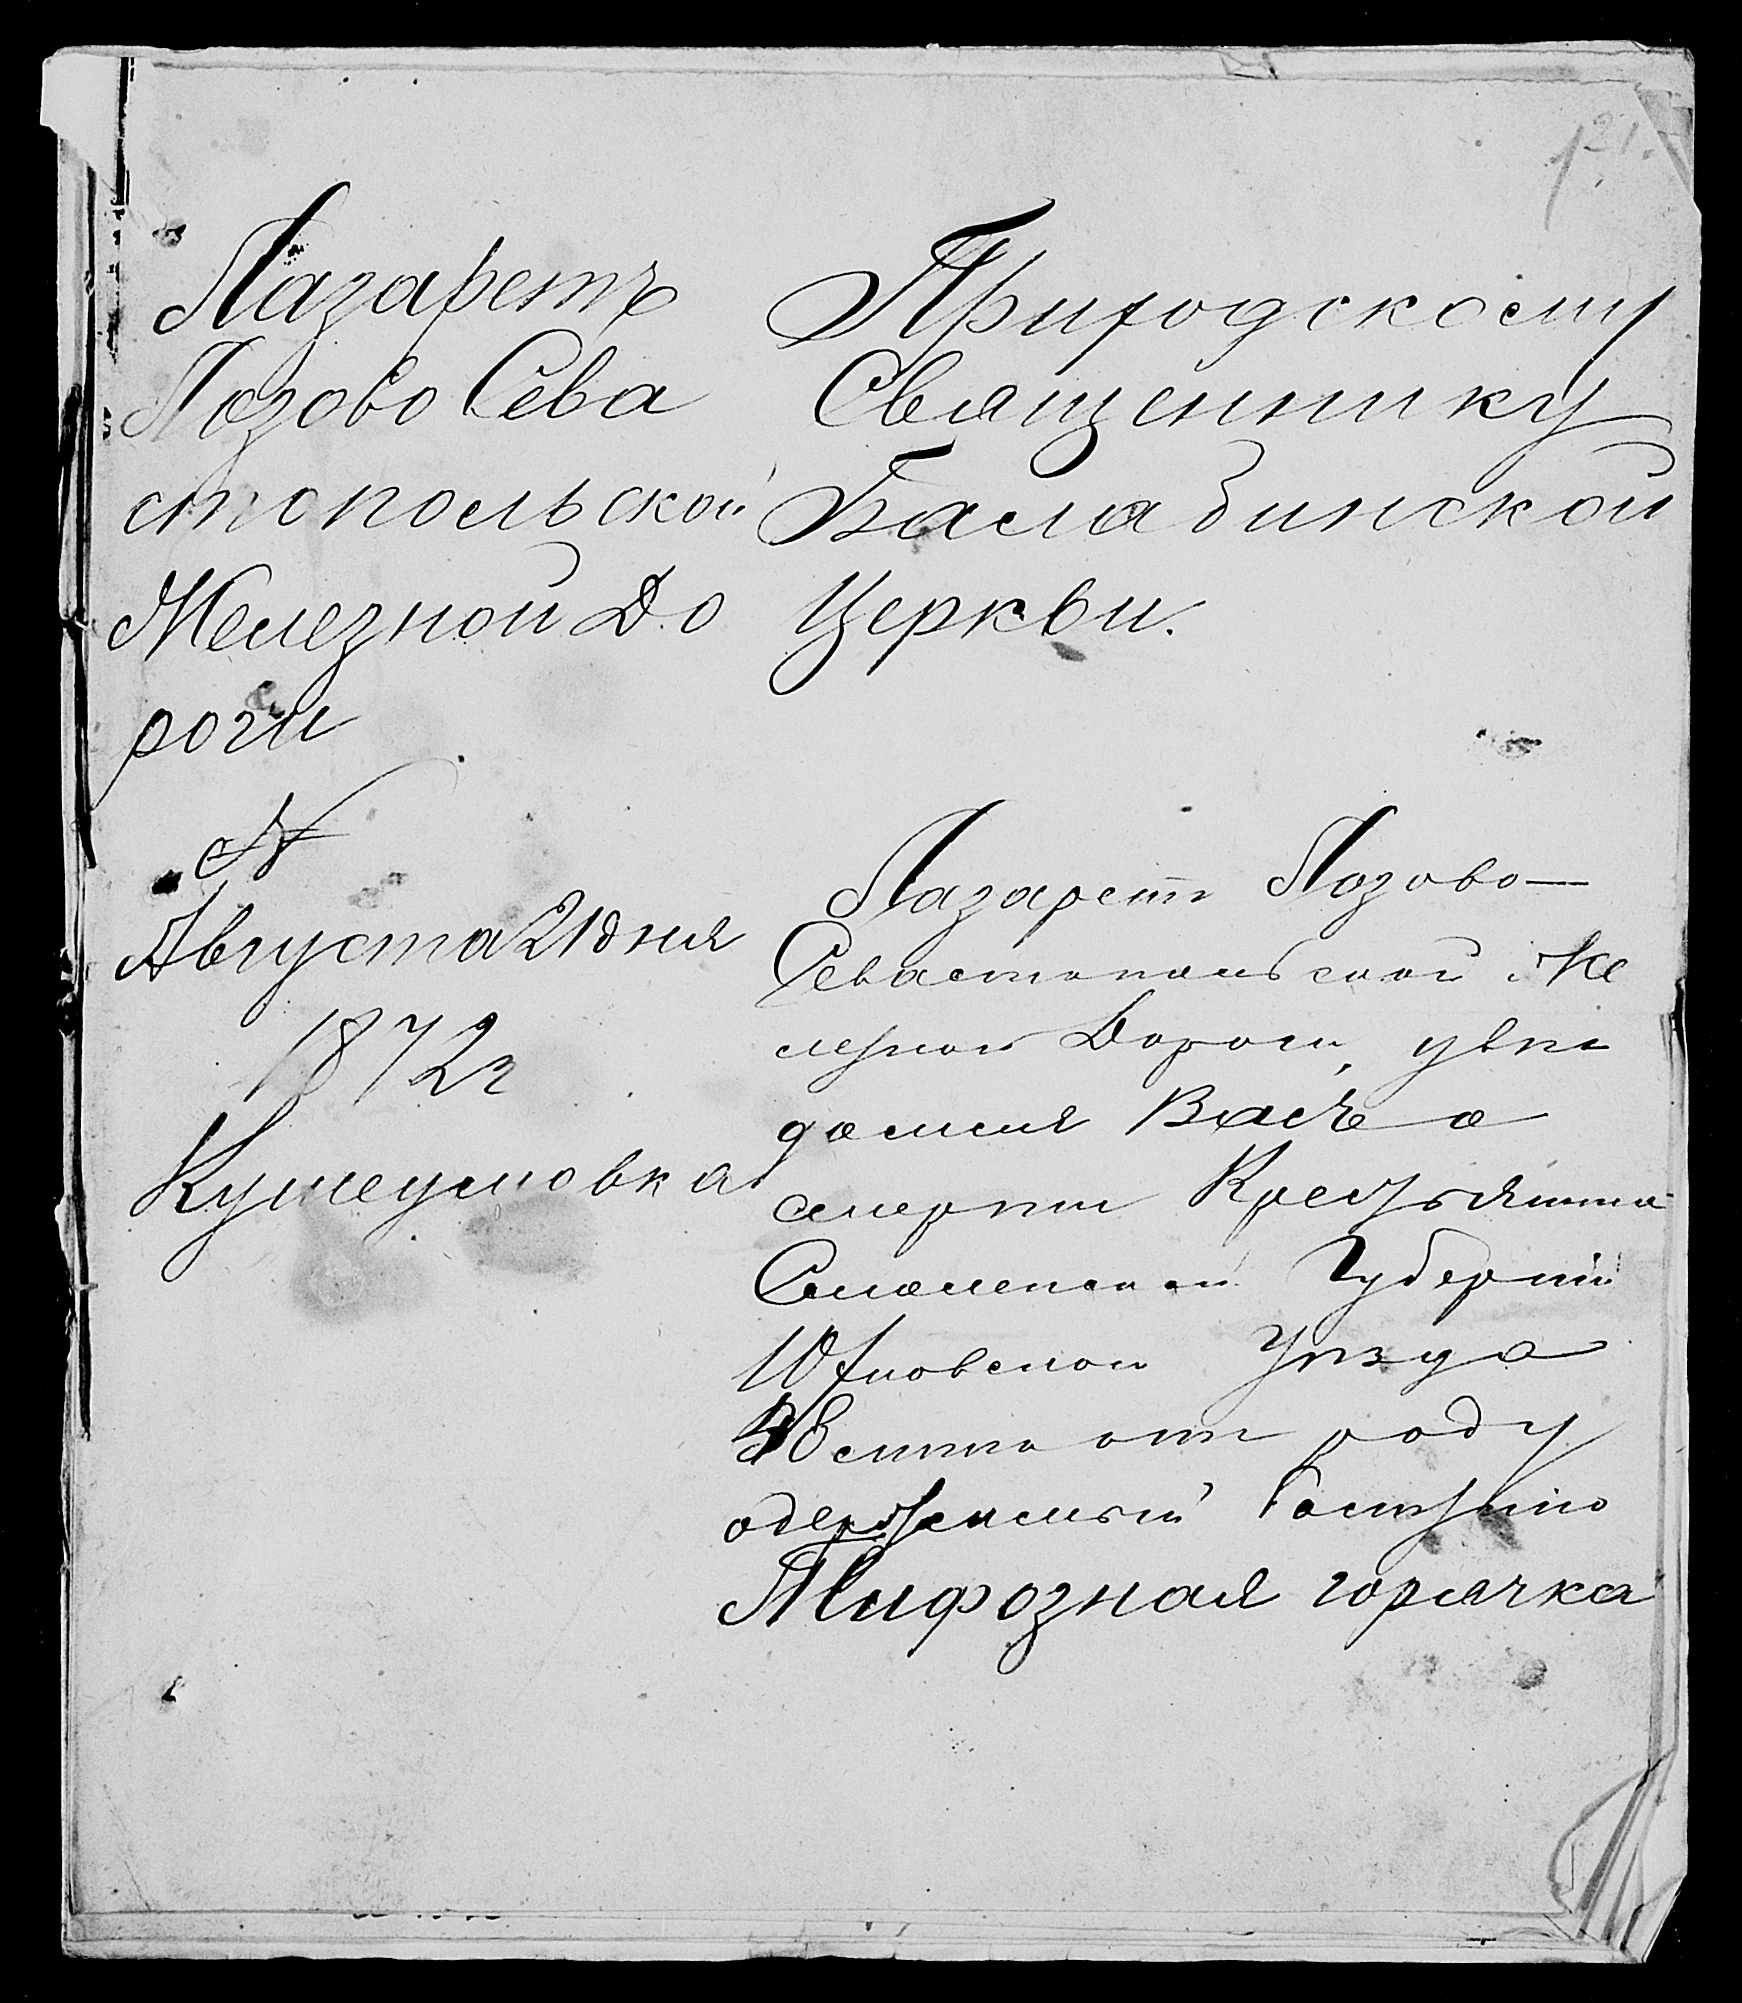 Лазаретъ
Лозово Сева
стопольской
Железной До
роги
N
Августа 21 дня
1872 г
Кушеумовка
Приходскому
Священнику
Балабинской
Церкви.
Лазарет Лозово-
Севастопольской Же
лезной Дороги, уве
домля Васъ о
смерти Крестьянина
Смоленской Губернии
Юхновскои Уезда
от роду
одержимый
Тифозная горячка